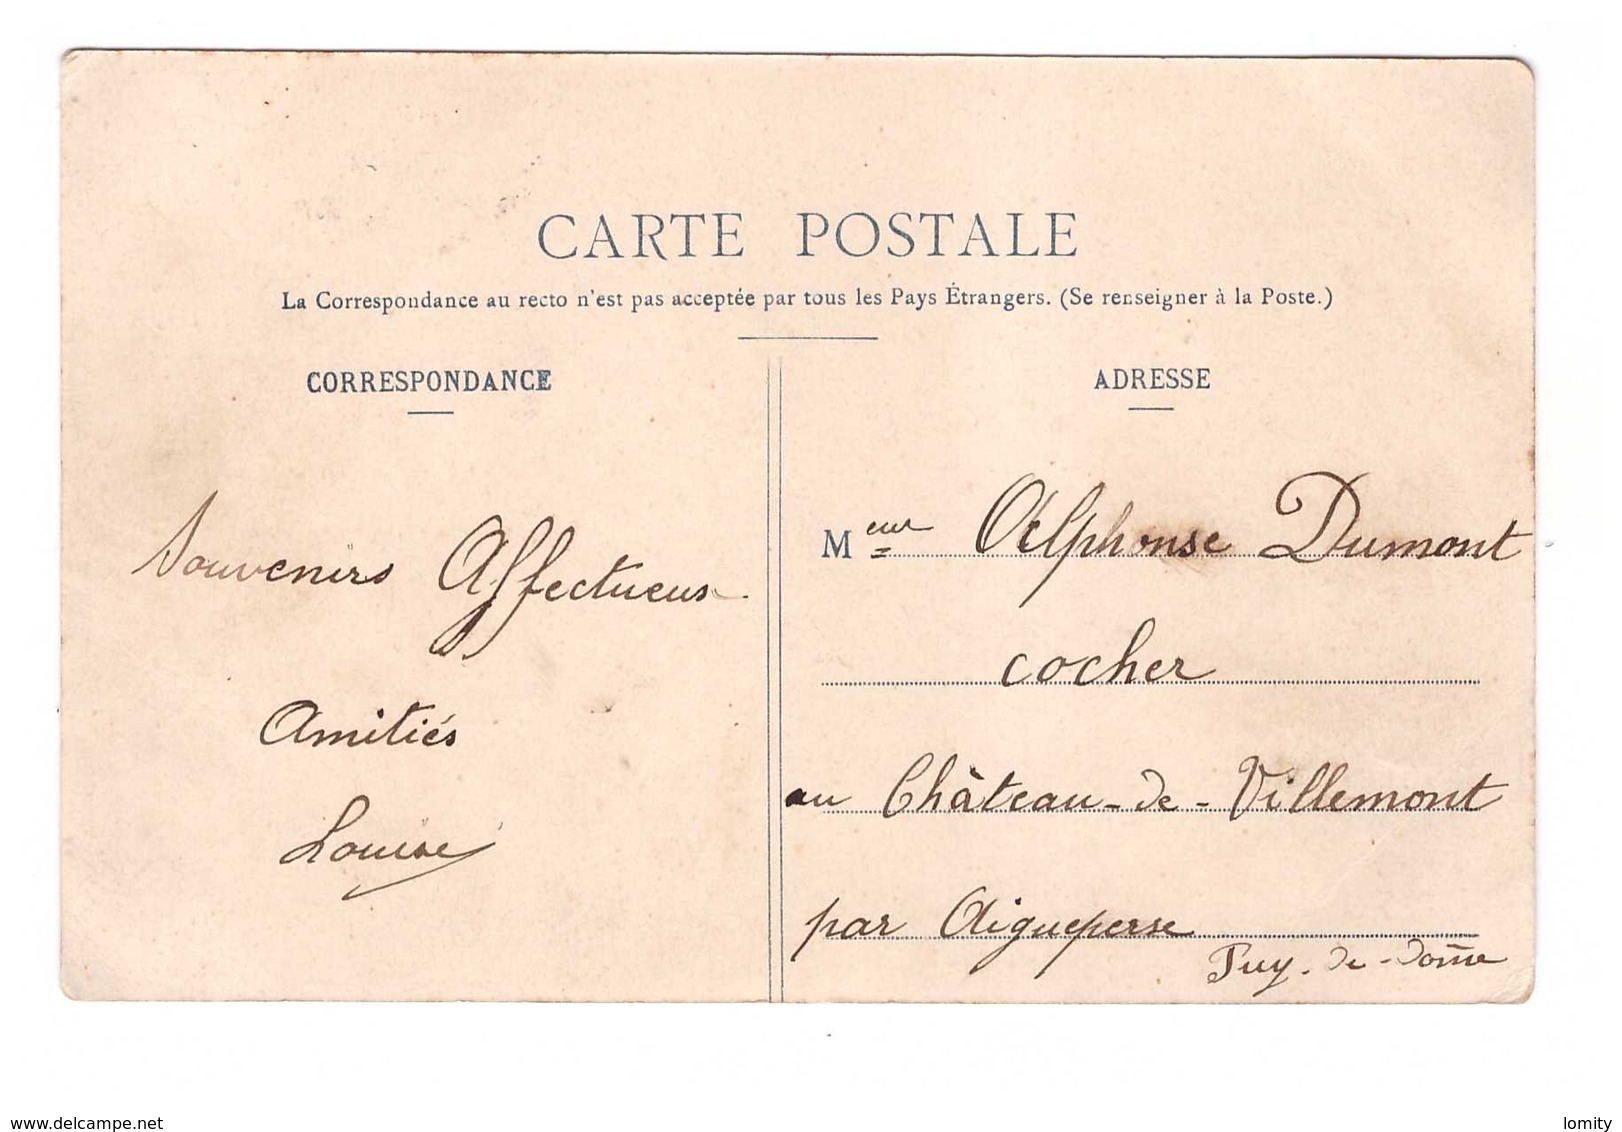 CARTE POSTALE
La Correspondance au recto n'est pas acceptée par tous les Pays Étrangers. (Se renseigner à la Poste.)
CORRESPONDANCE
Souvenirs Affectueux
Amitiés
Louise
ADRESSE
Meur Alphonse Dumont
cocher
au Château-de-Villemont
par Aigueperse
Puy-de-Dôme
www.delcampe.net
lomity